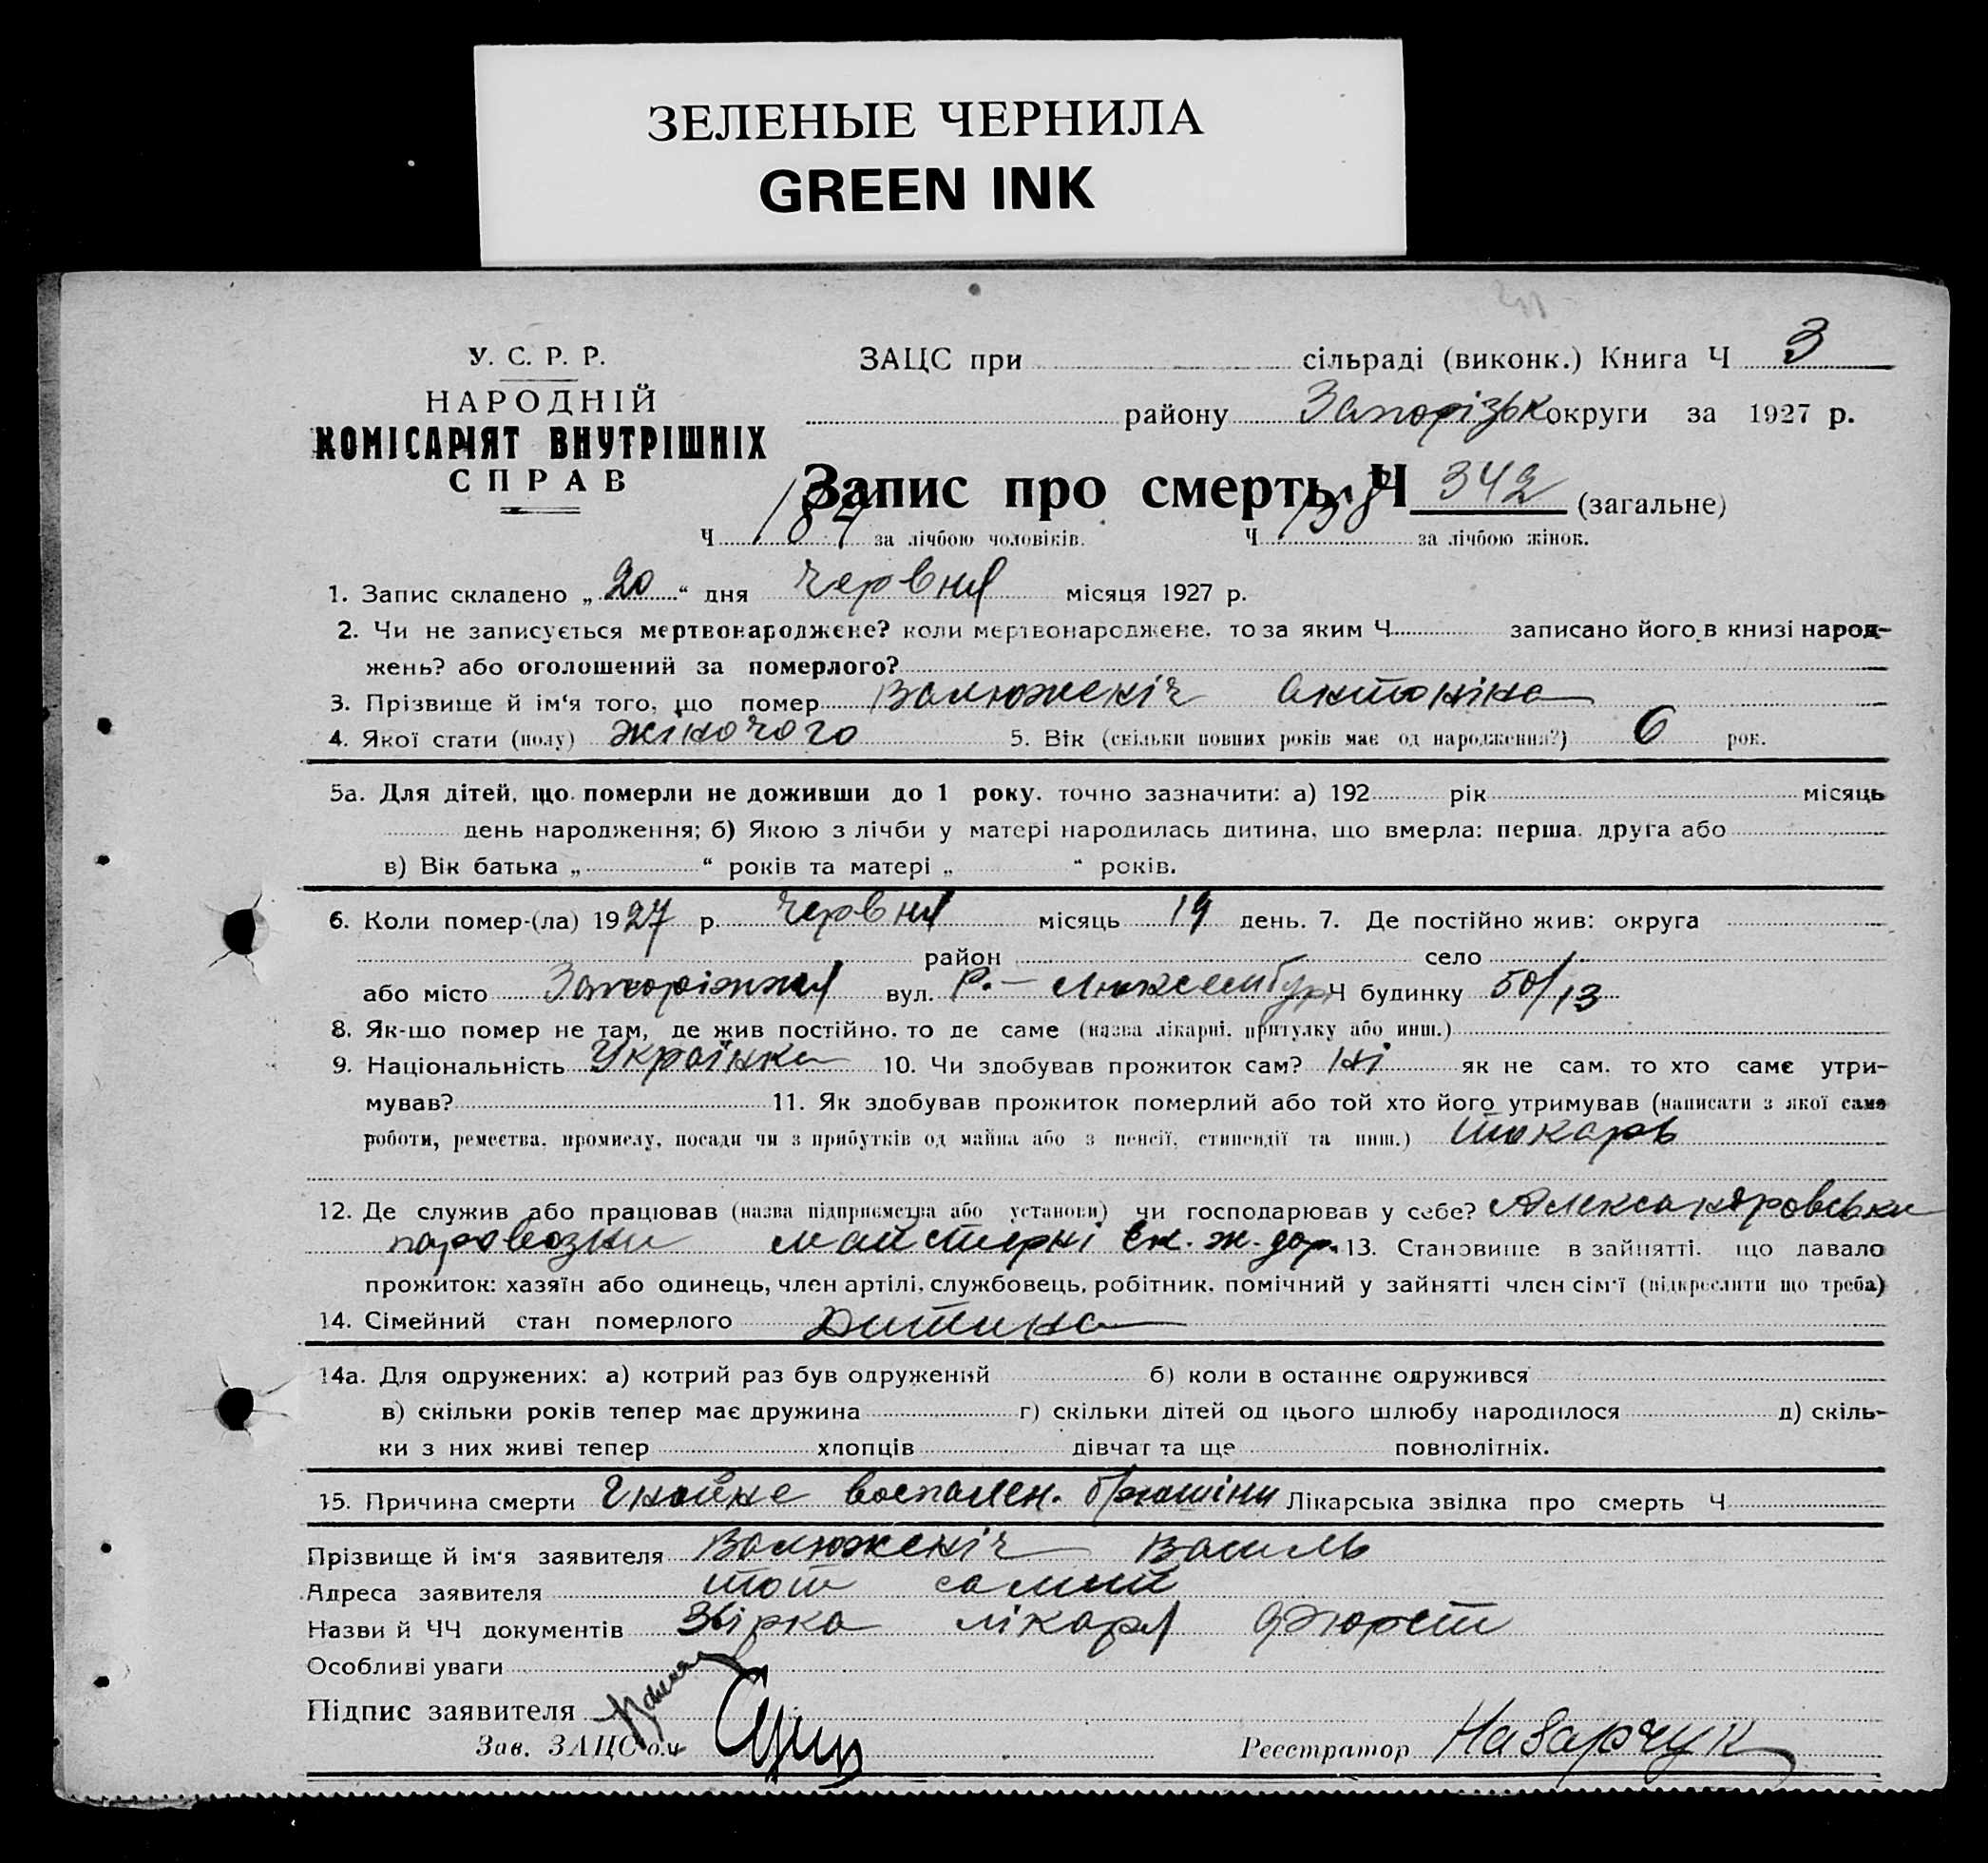 ЗЕЛЕНЫЕ ЧЕРНИЛА
GREEN INK
У. С. Р. Р.
НАРОДНІЙ
КОМІСАРІЯТ ВНУТРІШНІХ
СПРАВ
ЗАЦС при сільраді (виконк.) Книга Ч 3
району Запорізьк округи за 1927 р.
Запис про смерть Ч 342 (загальне)
Ч 184 за лічбою чоловіків. Ч 158 за лічбою жінок.
1. Запис складено „20“ дня Червня місяця 1927 р.
2. Чи не записується мертвонароджене? коли мертвонароджене, то за яким Ч записано його в книзі народ-
жень? або оголошений за померлого?
3. Прізвище й ім'я того, що помер Валюженіч Антоніна
4. Якої стати (полу) жіночого 5. Вік (скільки повних років має од народження?) 6 рок.
5а. Для дітей, що померли не доживши до 1 року, точно зазначити: а) 192 рік місяць
день народження; б) Якою з лічби у матері народилась дитина, що вмерла: перша, друга або
в) Вік батька „ “ років та матері „ “ років.
6. Коли помер-(ла) 1927 р. Червня місяць 19 день. 7. Де постійно жив: округа
район село
або місто Запоріжжя вул. Р.- Люксембург Ч будинку 50/13
8. Як-що помер не там, де жив постійно, то де саме (назва лікарні, притулку або инш.)
9. Національність Українка 10. Чи здобував прожиток сам? Ні як не сам, то хто саме утри-
мував? 11. Як здобував прожиток померлий або той хто його утримував (написати з якої саме
роботи, ремества, промислу, посади чи з прибутків од майна або з пенсії, стипендії та инш.) Токарь
12. Де служив або працював (назва підприємства або установи) чи господарював у себе? Александровськи
паровозни майстерні Ек. ж. дор. 13. Становище в зайнятті, що давало
прожиток: хазяїн або одинець, член артілі, службовець, робітник, помічний у зайнятті член сім'ї (підкреслити що треба)
14. Сімейний стан померлого Дитина
14а. Для одружених: а) котрий раз був одружений б) коли в останнє одружився
в) скільки років тепер має дружина г) скільки дітей од цього шлюбу народилося д) скіль-
ки з них живі тепер хлопців дівчат та ще повнолітніх.
15. Причина смерти Гнойне воспален. брюшіни Лікарська звідка про смерть Ч
Прізвище й ім'я заявителя Валюженіч Василь
Адреса заявителя тот самий
Назви й ЧЧ документів Звірка лікаря Фюрст
Особливі уваги
Підпис заявителя
Зав. ЗАЦС'ом Реєстратор Назарчук